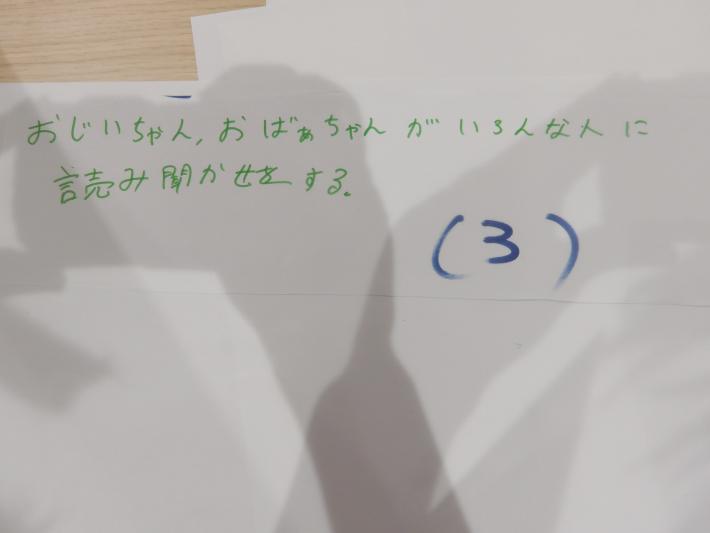 おじいちゃん,おばぁちゃんがいろんな人に
読み聞かせをする。
(3)